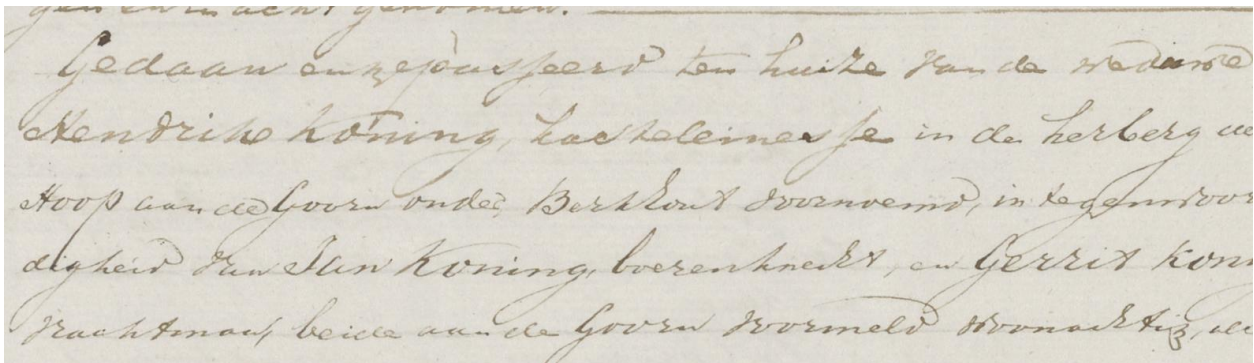 gen en in acht genomen.
Gedaan en gepasseerd ten huize van de weduwe
Hendrik Koning, kasteleinesse in de herberg de
Hoop aan de Goorn onder Berkhout voornoemd, in tegenwoor
digheid van Jan Koning, boerenknecht, en Gerrit Koni
vrachtman, beide aan de Goorn voormeld woonachtig, als